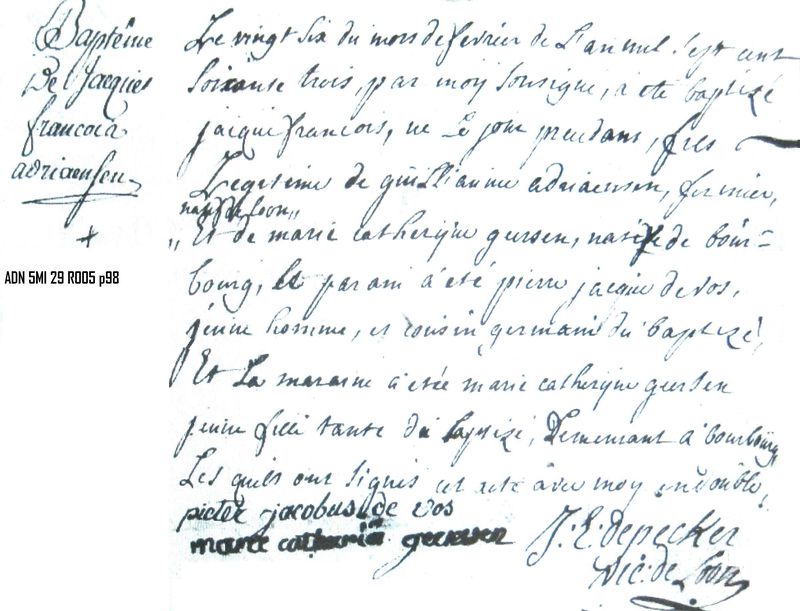 Baptême
De Jacques
francois
adriansen
+
ADN 5MI 29 R005 p98
Le vingt six du mois de fevrier de L'an mil sept cent
soixante trois, par moy sousigné, a eté baptizé
jacque francois, né Le jour precedant, fils
Legetime de guilliaume adriaensen, fermier,
natif de Loon,,
,, Et de marie catherijne geersen, native de bour=
bourg, Le parain a été pierre jacque de vos,
jeune homme, et cousin germain du baptizé,
Et La maraine a etée marie catherijne geersen
jeune fille tante du baptizé, Demeurant à bourbourg
Les quels ont signés cet acte avec moy en double,
pieter jacobus de vos
marie catharin geerssen
J. E. depecker
vic: de Loon